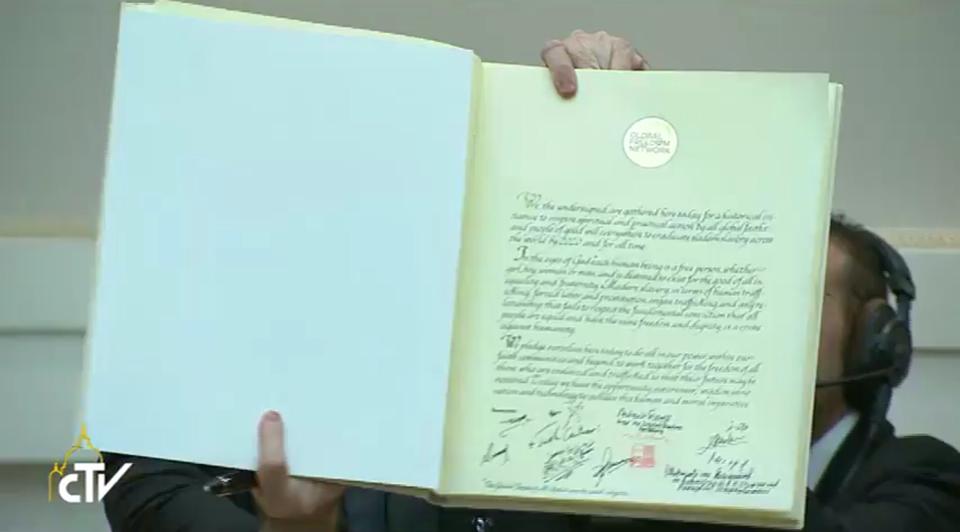 GLOBAL
FREEDOM
NETWORK
We, the undersigned, are gathered here today for a historical in-
itiative to inspire spiritual and practical action by all global faiths
and people of good will everywhere to eradicate modern slavery across
the world by 2020 and for all time.
In the eyes of God each human being is a free person, whether
girl, boy, woman or man, and is destined to exist for the good of all in
equality and fraternity. Modern slavery, in terms of human traff-
icking, forced labor and prostitution, organ trafficking, and any re-
lationship that fails to respect the fundamental conviction that all
people are equal and have the same freedom and dignity, is a crime
against humanity.
We pledge ourselves here today to do all in our power, within our
faith communities and beyond, to work together for the freedom of all
those who are enslaved and trafficked so that their future may be
restored. Today we have the opportunity, awareness, wisdom, inno-
vation and technology to achieve this human and moral imperative.
CTV